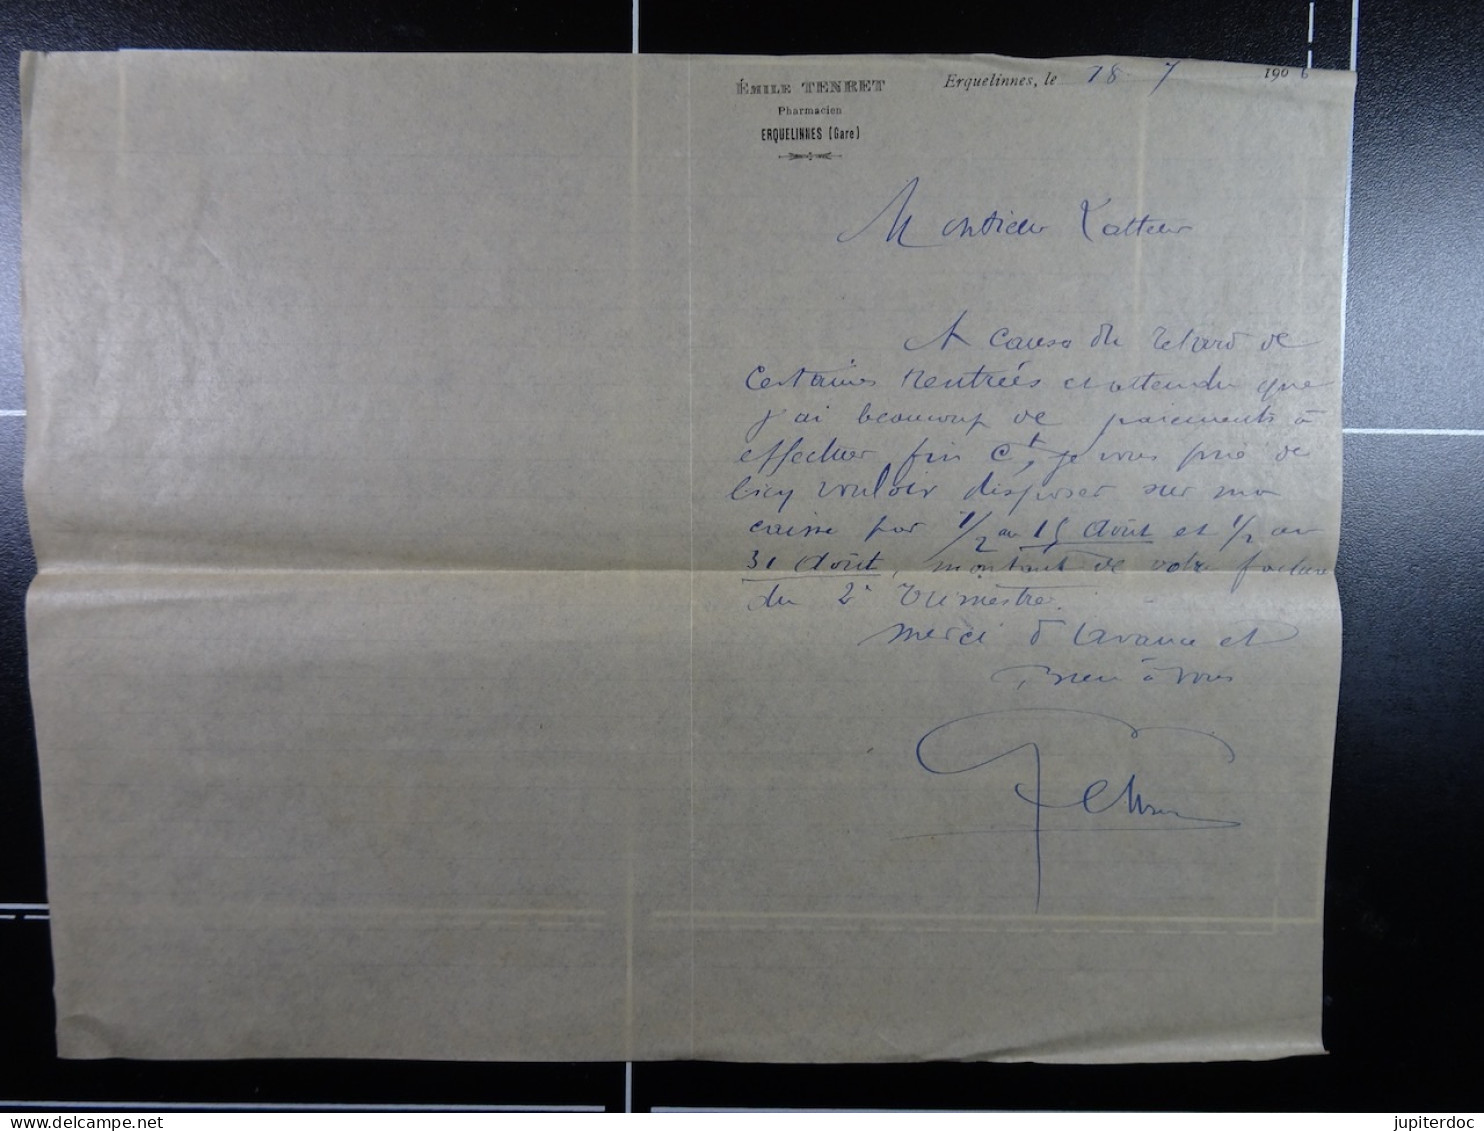 ÉMILE TENRET
Pharmacien
ERQUELINNES (Gare)
Erquelinnes, le 18 7 1906
Monsieur Latteur
A cause du retard de
certaines rentrées et attendu que
j'ai beaucoup de paiements à
effectuer fin ct, je vous prie de
bien vouloir disposer sur ma
caisse par 1/2 au 15 Août et 1/2 au
31 Août, montant de votre facture
du 2e trimestre.
merci d'avance et
Bien à vous
www.delcampe.net
jupiterdoc